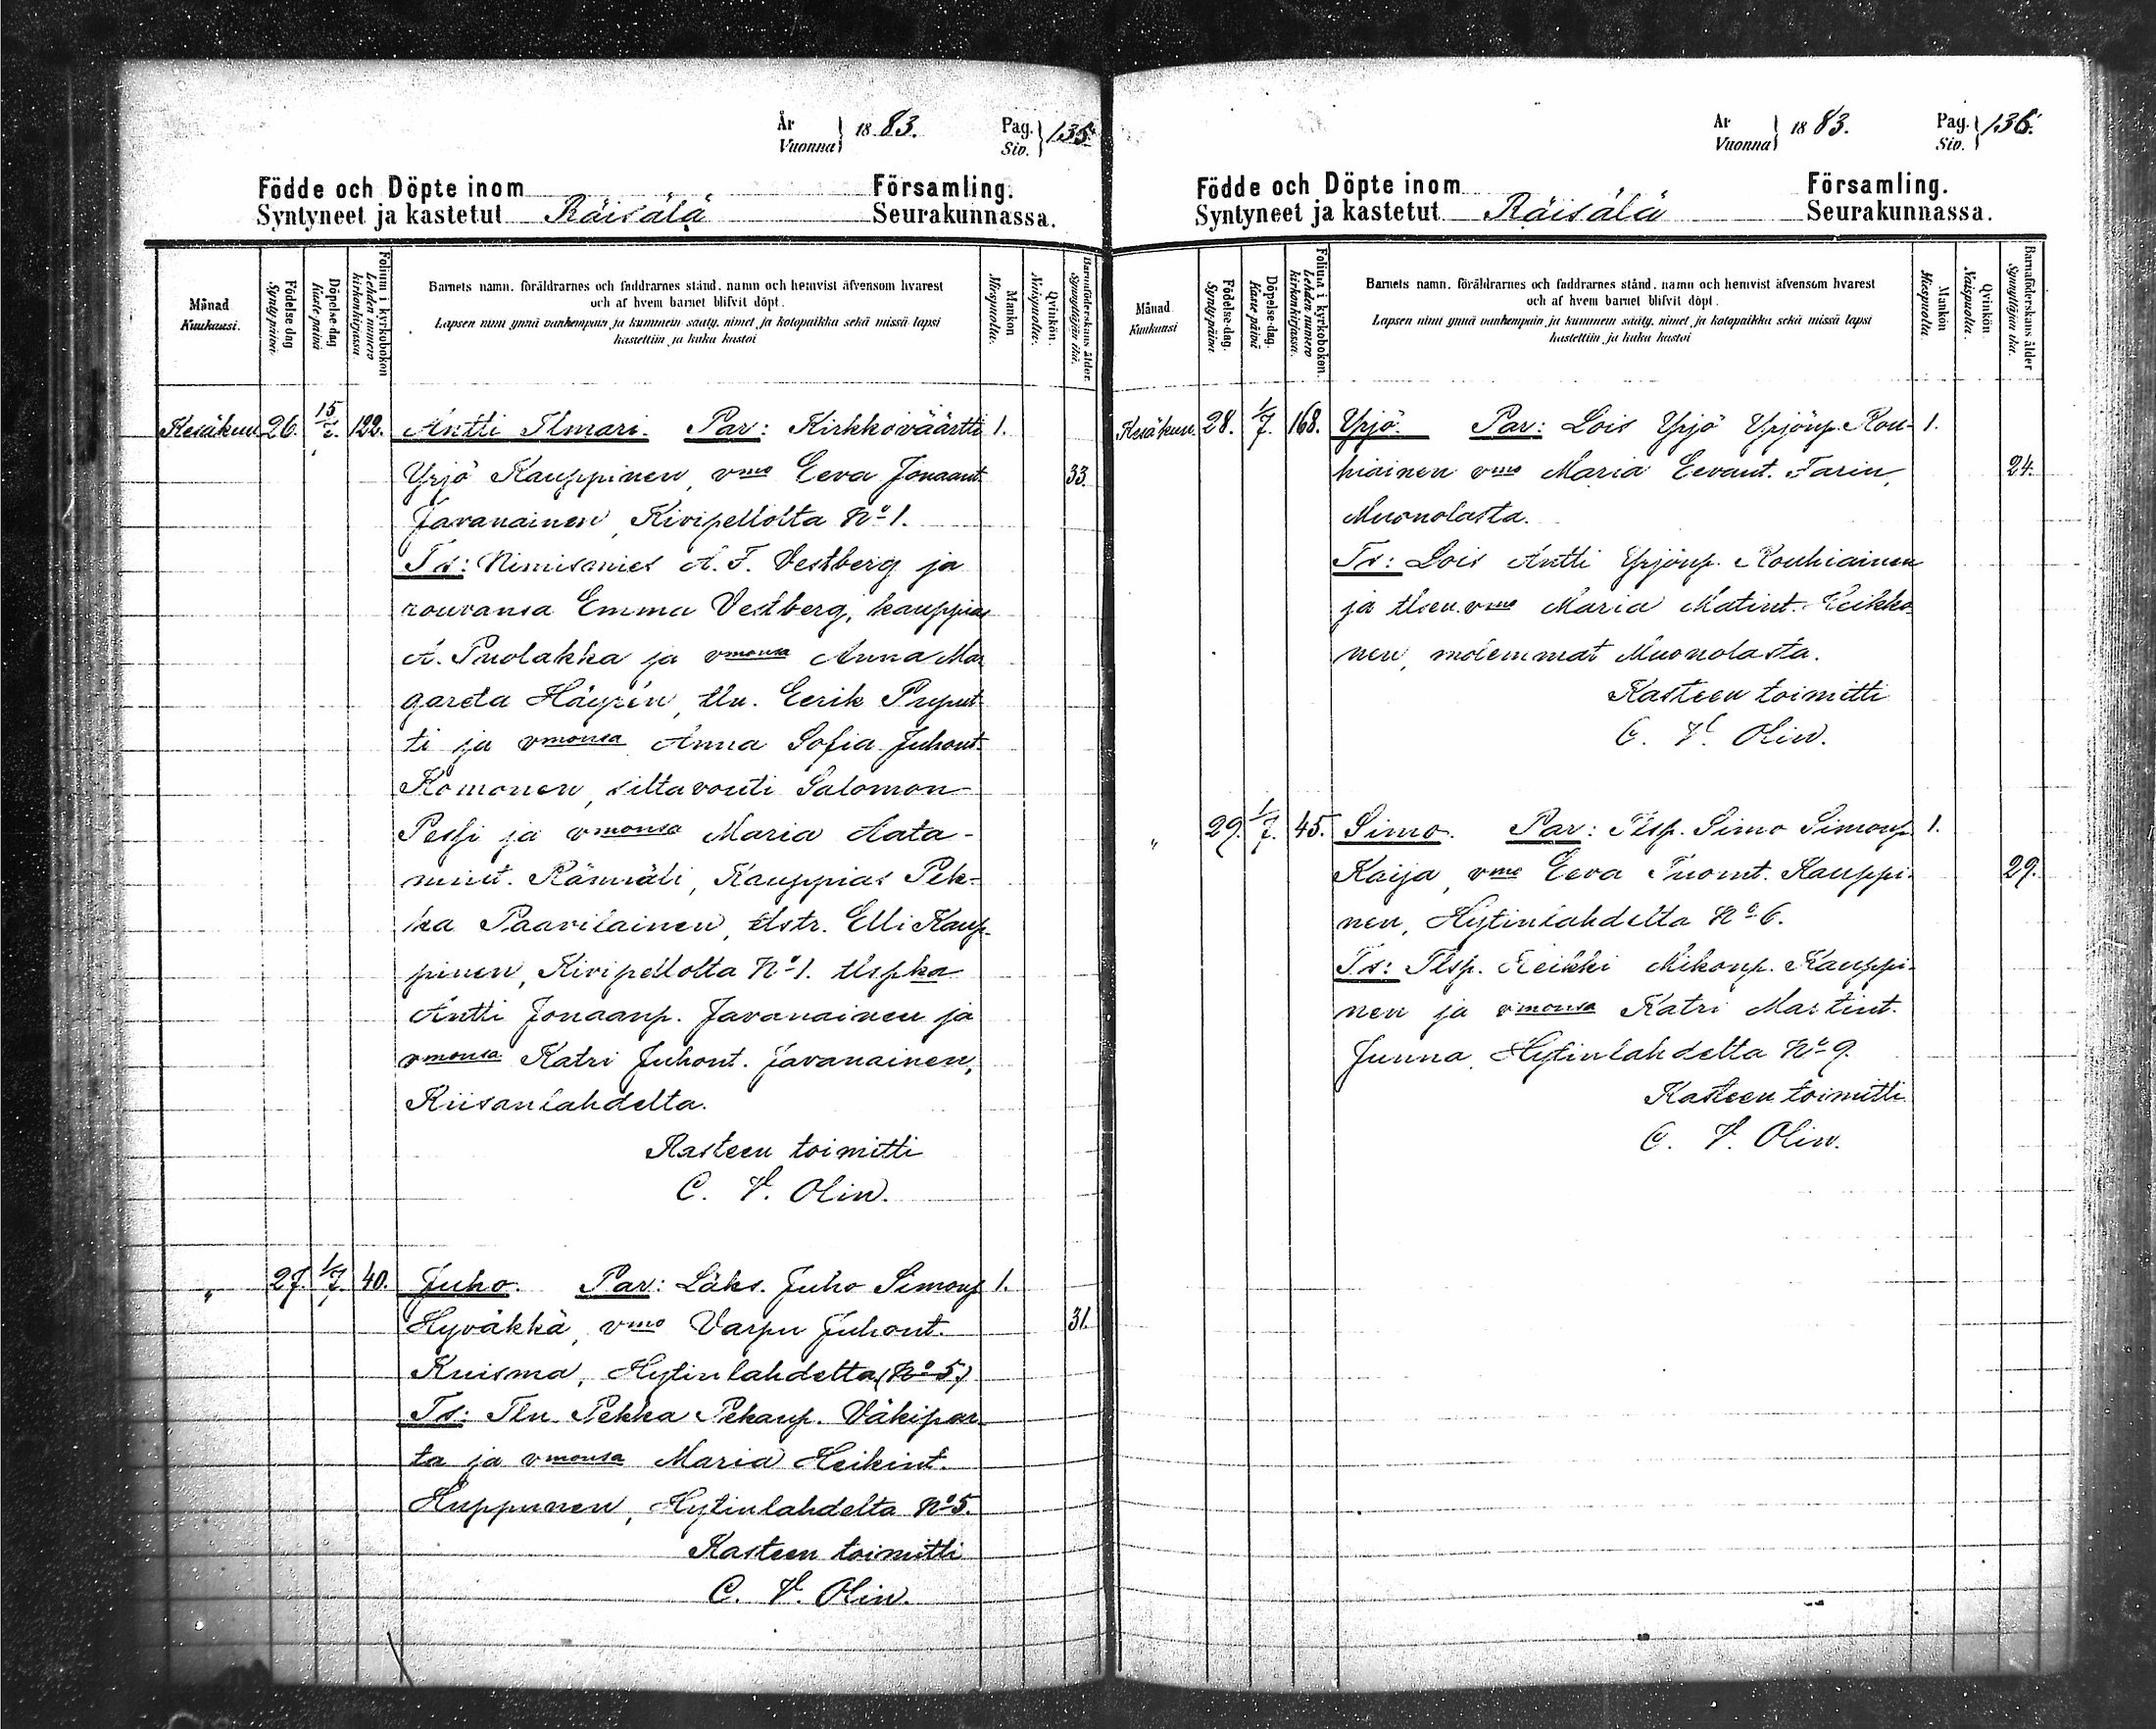 År
Vuonna } 1883. Pag.
Siv. } 135.
Födde och Döpte inom Församling.
Syntyneet ja kastetut Räisälä Seurakunnassa.
Månad
Kuukausi.
Födelse-dag
Synty päivä.
Döpelse-dag
Kaste päivä
Folium i kyrkoboken
Lehden numero
kirkonkirjassa.
Barnets namn, föräldrarnes och faddrarnes stånd, namn och hemvist äfvensom hvarest
och af hvem barnet blifvit döpt.
Lapsen nimi ynnä vanhempain ja kummein sääty, nimet ja kotopaikka sekä missä lapsi
kastettiin ja kuka kastoi
Mankön
Miespuolta.
Qvinkön.
Naispuolta.
Barnaföderskans ålder.
Synnyttäjän ikä.
Kesäkuu 26. 15/7. 122. Antti Ilmari. Par: Kirkkoväärtti 1.
Yrjö Kauppinen, vmo Eeva Jonaant. 33.
Javanainen, Kivipellolta No 1.
Ts: Nimismies A. F. Vestberg ja
rouvansa Emma Vestberg, kauppias
A. Puolakka ja vmonsa Anna Mar
gareta Häyrén, tln. Eerik Pryut
ti ja vmonsa Anna Sofia Juhont.
Komonen, siltavouti Salomon
Pessi ja vmonsa Maria Aata-
mint. Rämäli, Kauppias Pek-
ka Paavilainen, tlstr. Elli Kaup-
pinen, Kivipellolta No 1. tlspka
Antti Jonaanp. Javanainen ja
vmonsa Katri Juhont. Javanainen,
Riisanlahdelta.
Kasteen toimitti
C. V. Olin.
" 27. 1/7. 40. Juho. Par: Läks. Juho Simonp 1.
Hyväkkä, vmo Varpu Juhont. 31.
Kuisma, Hytinlahdelta (No 5.)
Ts: Tln Pekka Pekanp. Väkipar
ta ja vmonsa Maria Heikint.
Huppunen, Hytinlahdelta No 5.
Kasteen toimitti
C. V. Olin.
År
Vuonna } 1883. Pag.
Siv. } 136.
Födde och Döpte inom Församling.
Syntyneet ja kastetut Räisälä Seurakunnassa.
Månad
Kuukausi
Födelse-dag.
Synty päivä.
Döpelse-dag.
Kaste päivä
Folium i kyrkoboken.
Lehden numero
kirkonkirjassa.
Barnets namn, föräldrarnes och faddrarnes stånd, namn och hemvist äfvensom hvarest
och af hvem barnet blifvit döpt.
Lapsen nimi ynnä vanhempain ja kummein sääty, nimet ja kotopaikka sekä missä lapsi
kastettiin ja kuka kastoi
Mankön
Miespuolta.
Qvinkön
Naispuolta.
Barnaföderskans ålder
Synnyttäjän ikä.
Kesäkuu. 28. 1/7. 168. Yrjö. Par: Lois Yrjö Yrjönp. Rou- 1.
hiainen vmo Maria Eevant. Farin, 24.
Muonolasta.
Ts: Lois Antti Yrjönp. Rouhiainen
ja tlsen. vmo Maria Matint. Leikko
nen, molemmat Muonolasta.
Kasteen toimitti
C. V. Olin.
" 29. 1/7. 45. Simo. Par: Tlsp. Simo Simonp. 1.
Kaija, vmo Eeva Tuomt. Kauppi- 29.
nen, Hytinlahdelta No 6.
Ts: Tlsp. Heikki Mikonp. Kauppi-
nen ja vmonsa Katri Martint.
Junna, Hytinlahdelta No 9.
Kasteen toimitti
C. V. Olin.